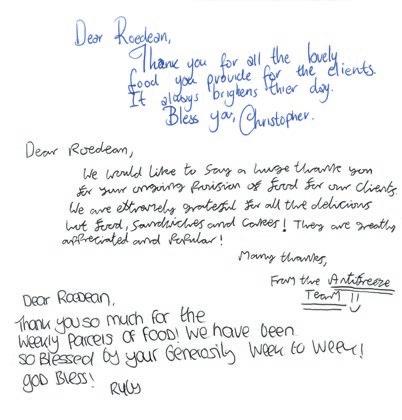 Dear Roedean,
Thank you for all the lovely
food you provide for the clients.
It always brightens thier day.
Bless you, Christopher.
Dear Roedean,
We would like to say a huge thank you
for your ongoing Provision of food for our clients.
We are extremely grateful for all the delicious
hot food, sandwiches and cakes! They are greatly
appreciated and Popular!
Many thanks,
From the Antifreeze
Team!!
Dear Roedean,
Thank you so much for the
weekly parcels of food! We have been
so Blessed by your Generosity week to week!
God Bless! Ruby